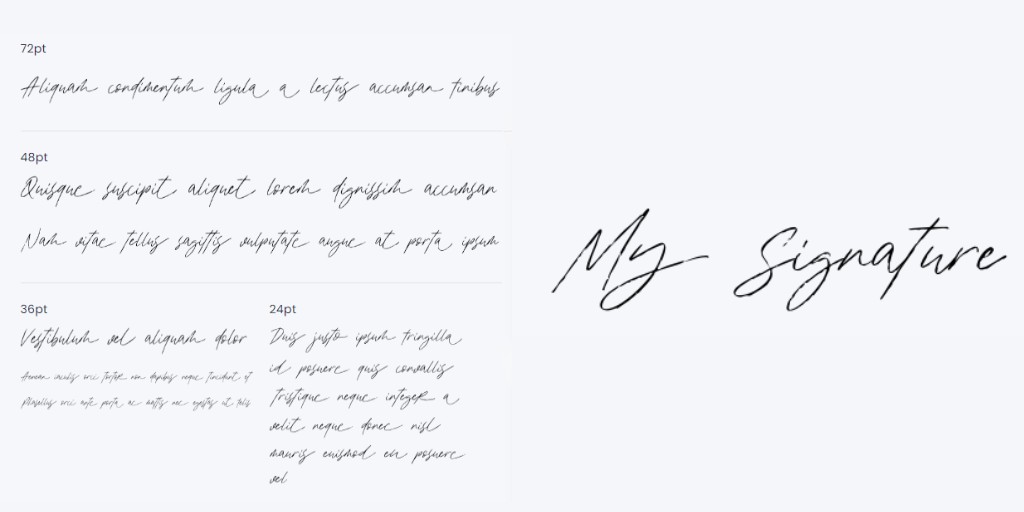 72pt
Aliquam condimentum ligula a lectus accumsan finibus
48pt
Quisque suscipit aliquet lorem dignissim accumsan
Nam vitae tellus sagittis vulputate augue at porta ipsum
36pt
Vestibulum vel aliquam dolor
Aenean iaculis orci tortor non dapibus neque tincidunt et
Phasellus orci ante porta ac mattis nec egestas ut felis
24pt
Duis justo ipsum fringilla
id posuere quis convallis
tristique neque integer a
velit neque donec nisl
mauris euismod eu posuere
vel
My Signature